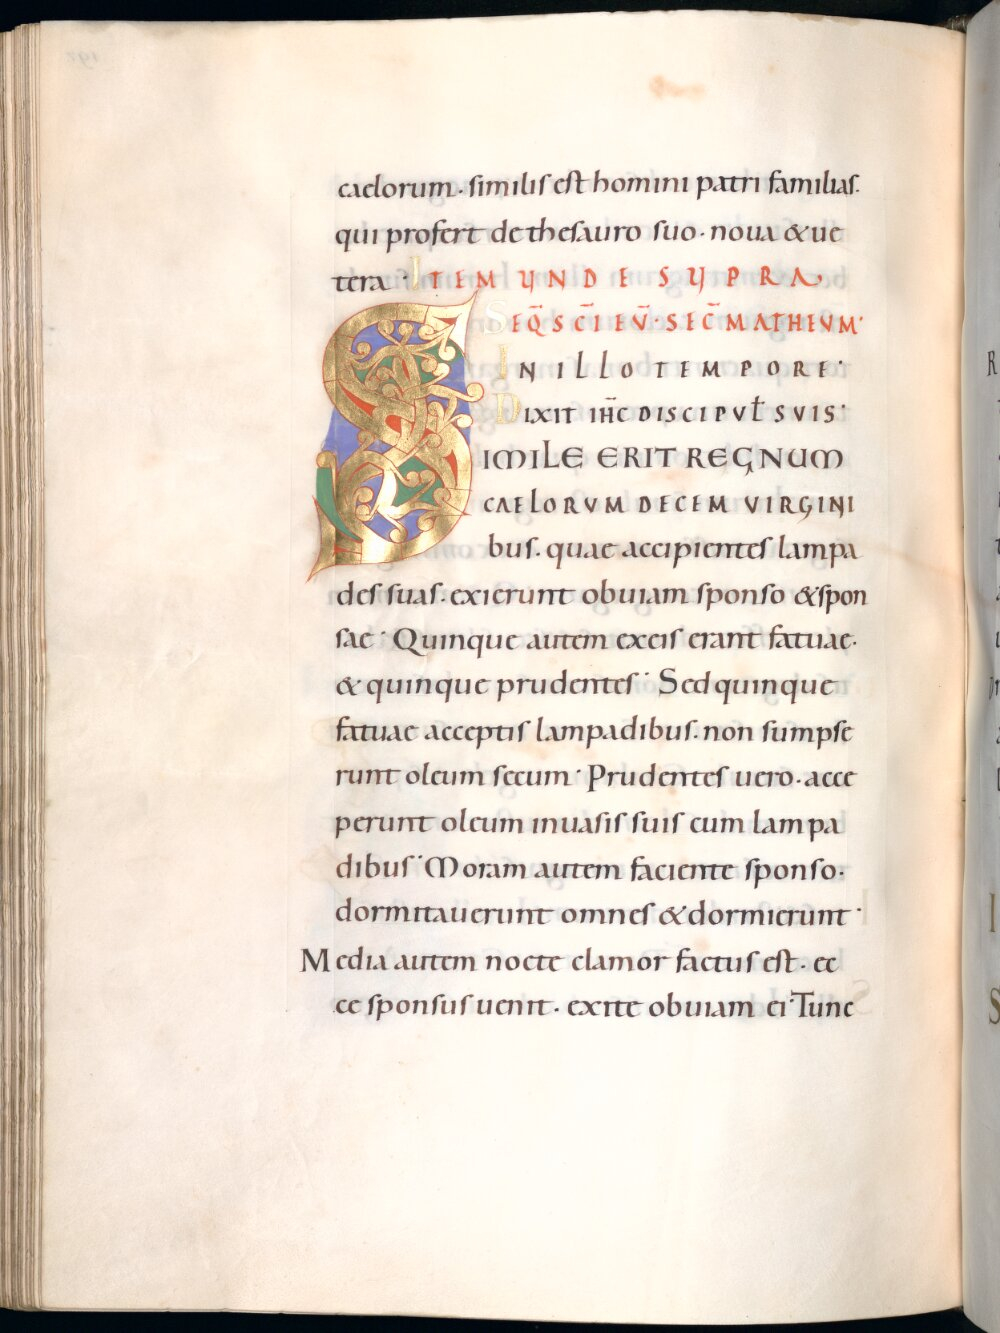 caelorum · similis est homini patri familias.
qui profert de thesauro suo · noua & ue
tera · ITEM UNDE SUPRA ·
SEQ̄ SC̄I EV̄ · SEC̄ MATHEVM ·
IN ILLO TEMPORE ·
DIXIT IH̄C DISCIPVŁ SVIS ·
SIMILE ERIT REGNUM
CAELORVM DECEM VIRGINI
bus · quae accipientes lampa
des suas · exierunt obuiam sponso & spon
sae · Quinque autem ex eis erant fatuae ·
& quinque prudentes · Sed quinque
fatuae acceptis lampadibus · non sumpse
runt oleum secum · Prudentes uero · acce
perunt oleum in uasis suis cum lampa
dibus · Moram autem faciente sponso ·
dormitauerunt omnes & dormierunt ·
Media autem nocte clamor factus est · ec
ce sponsus uenit · exite obuiam ei · Tunc